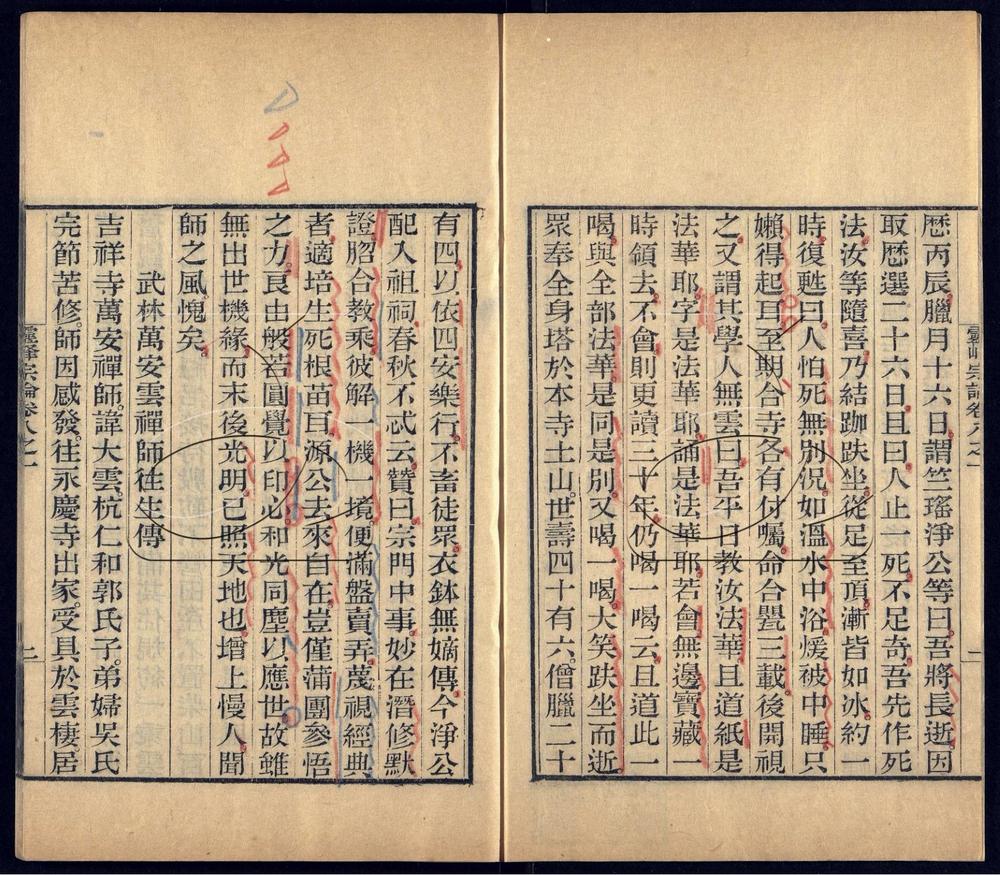 歷丙辰臘月十六日。謂竺瑤淨公等曰。吾將長逝。因
取曆選二十六日。且曰。人止一死。不足奇。吾先作死
法。汝等隨喜。乃結跏趺坐。從足至頂。漸皆如冰。約一
時。復甦曰。人怕死無別。況如溫水中浴。煖被中睡。只
嬾得起耳。至期。合寺各有付囑。命合龕三載後開視
之。又謂其學人無雲曰。吾平日教汝法華。且道紙是
法華耶。字是法華耶。誦是法華耶。若會無邊寶藏一
時領去。不會則更讀三十年。仍喝一喝云。且道此一
喝。與全部法華。是同是別。又喝一喝。大笑趺坐而逝。
眾奉全身塔於本寺土山。世壽四十有六。僧臘二十
靈峰宗論卷八之一
一
有四。以依四安樂行。不畜徒眾。衣鉢無嫡傳。今淨公
配入祖祠。春秋不忒云。贊曰。宗門中事。妙在潛修默
證。脗合教乘。彼解一機一境。便滿盤賣弄。蔑視經典
者。適培生死根苗耳。源公去來自在。豈僅蒲團參悟
之力。良由般若圓覺以印心。和光同塵以應世。故雖
無出世機緣。而末後光明。已照天地也。增上慢人。聞
師之風。愧矣。
武林萬安雲禪師往生傳
吉祥寺萬安禪師。諱大雲。杭仁和郭氏子。弟婦吳氏
完節苦修。師因感發。往永慶寺出家。受具於雲棲。居
靈峰宗論卷八之一
二